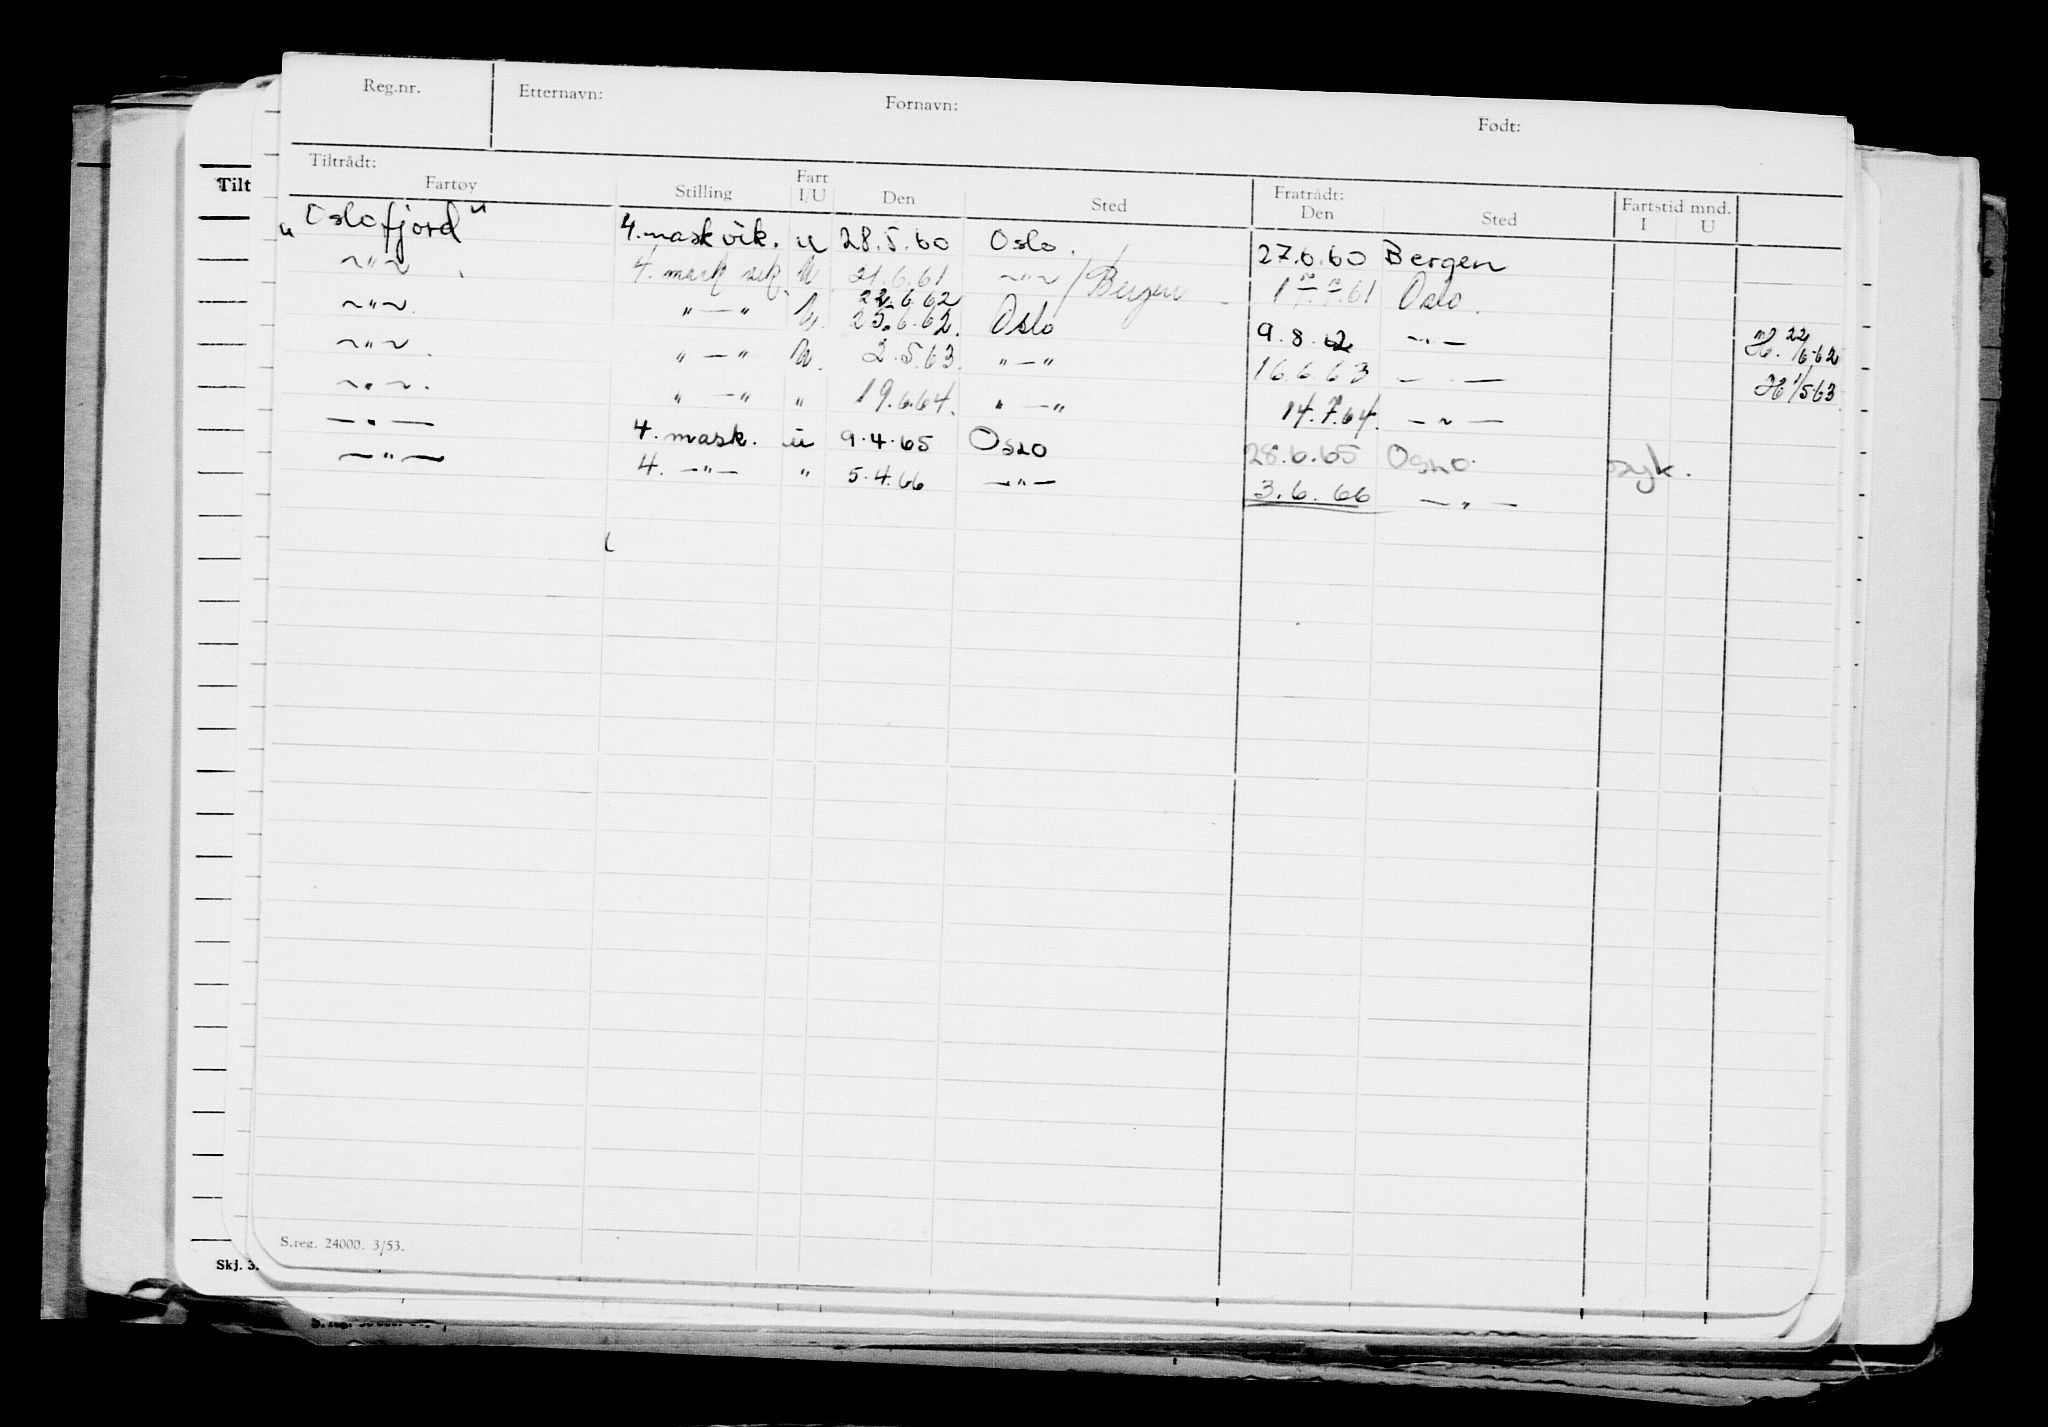 Reg.nr. Etternavn: Fornavn: Født:
Tiltrådt: Fratrådt: Fartstid mnd.
Fartøy Stilling Fart I/U Den Sted Den Sted I U
"Oslofjord" 4. mask vik. u 28.5.60 Oslo. 27.6.60 Bergen
~"~ 4. mask vik. U 21.6.61 ~"~/Bergen 17.7.61 Oslo.
22.6.62
~"~. "—" U. 25.6.62. Oslo 9.8.62 —"— 22/6-62
~"~. "—" U. 2.5.63. "—" 16.6.63 — — 1/5.63
~"~. "—" " 19.6.64. "—" 14.7.64. —"—
—"— 4. mask. u 9.4.65 Oslo 28.6.65 Oslo. syk.
—"— 4. —"— " 5.4.66 —"— 3.6.66 —"—
Tilt
S.reg. 24000. 3/53.
Skj. 3.